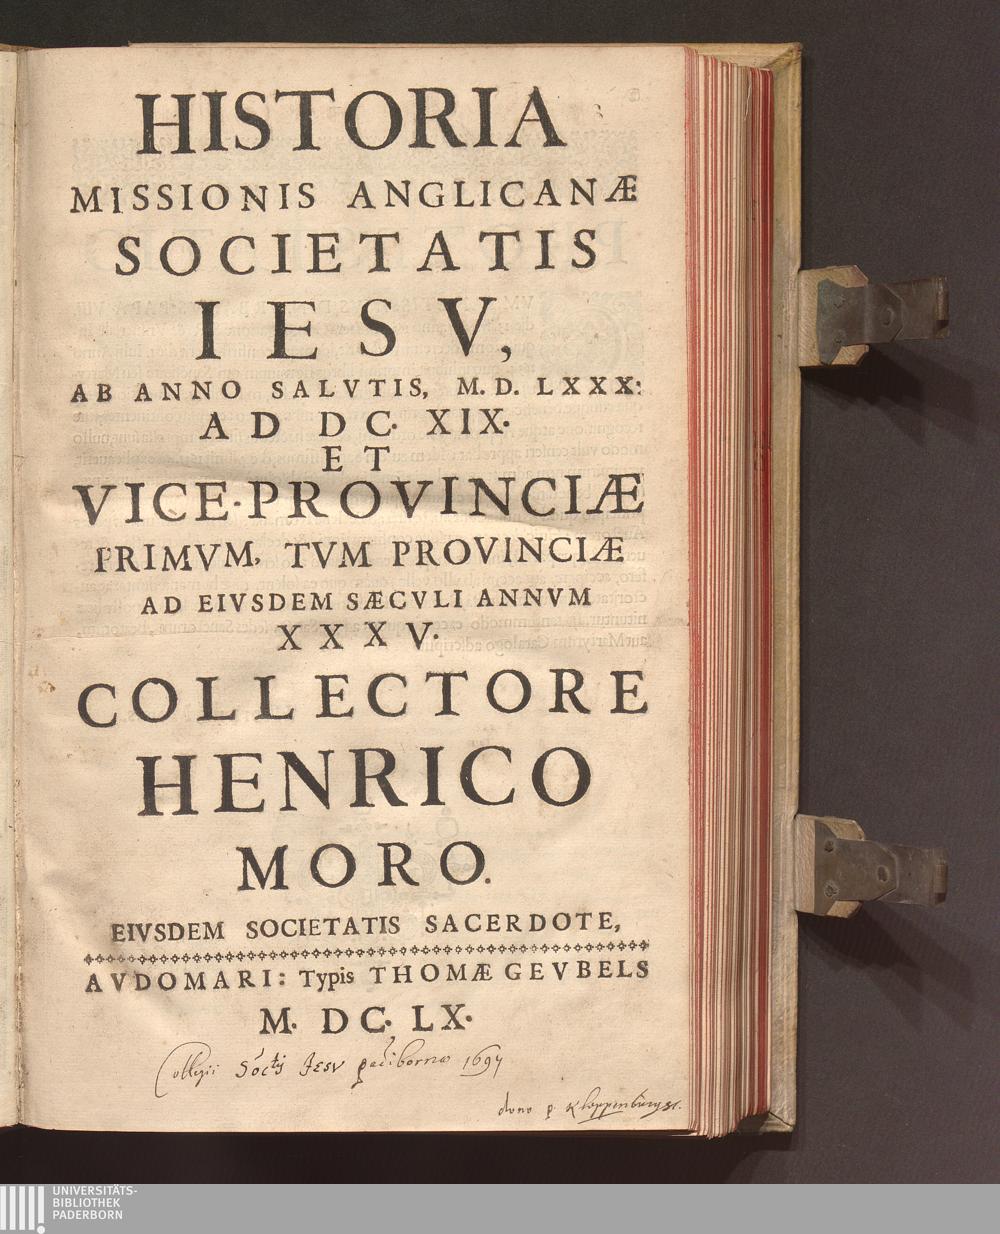 HISTORIA
MISSIONIS ANGLICANÆ
SOCIETATIS
IESV,
AB ANNO SALVTIS, M. D. LXXX:
AD DC. XIX.
ET
VICE-PROVINCIÆ
PRIMVM, TVM PROVINCIÆ
AD EIVSDEM SÆCVLI ANNVM
XXXV.
COLLECTORE
HENRICO
MORO.
EIVSDEM SOCIETATIS SACERDOTE,
AVDOMARI: Typis THOMÆ GEVBELS
M. DC. LX.
Collegii Soctis Jesv paderbornæ
dono p.
UNIVERSITÄTS-
BIBLIOTHEK
PADERBORN